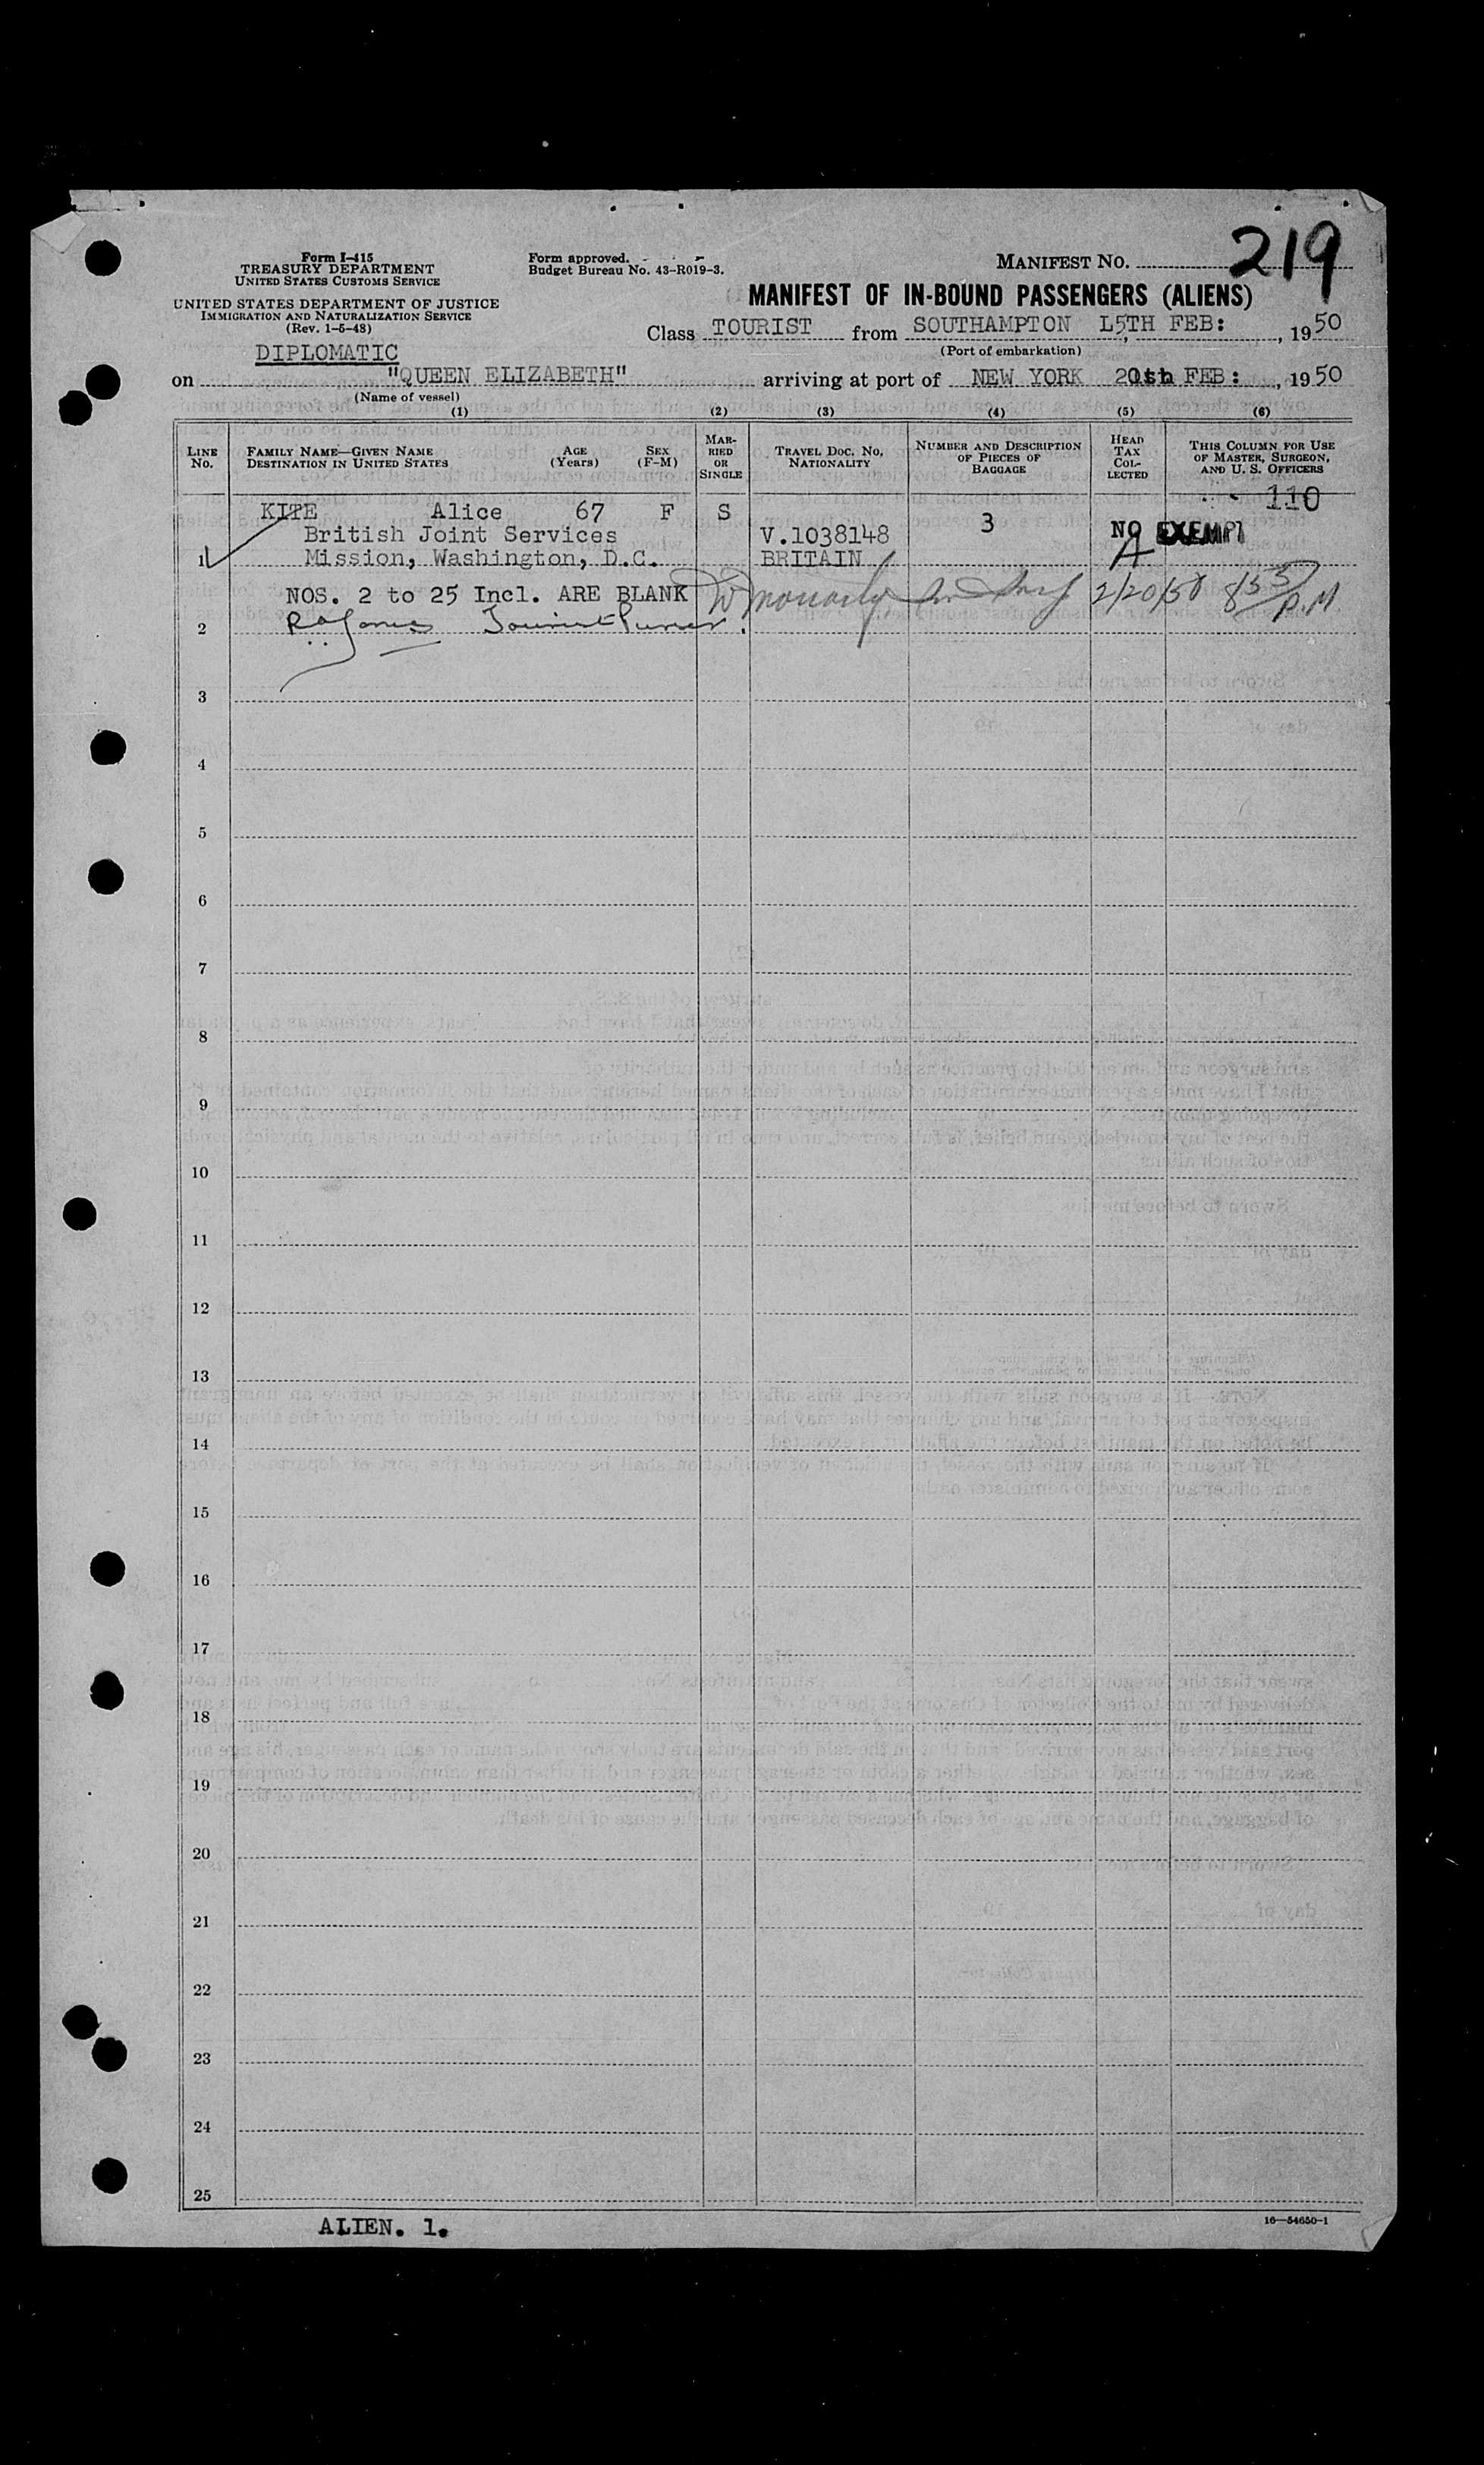 219
Form I-415
TREASURY DEPARTMENT
UNITED STATES CUSTOMS SERVICE
UNITED STATES DEPARTMENT OF JUSTICE
IMMIGRATION AND NATURALIZATION SERVICE
(Rev. 1-5-48)
Form approved.
Budget Bureau No. 43-R019-3.
MANIFEST NO.
MANIFEST OF IN-BOUND PASSENGERS (ALIENS)
Class TOURIST from SOUTHAMPTON L5TH FEB: , 1950
(Port of embarkation)
DIPLOMATIC
on "QUEEN ELIZABETH" arriving at port of NEW YORK 20th FEB: , 1950
(Name of vessel)
(1) (2) (3) (4) (5) (6)
LINE No. FAMILY NAME—GIVEN NAME DESTINATION IN UNITED STATES AGE (Years) SEX (F-M) MARRIED OR SINGLE TRAVEL DOC. NO. NATIONALITY NUMBER AND DESCRIPTION OF PIECES OF BAGGAGE HEAD TAX COLLECTED THIS COLUMN FOR USE OF MASTER, SURGEON, AND U. S. OFFICERS
110
KITE Alice 67 F S 3
British Joint Services V.1038148 NO EXEMPT
1 Mission, Washington, D.C. BRITAIN
NOS. 2 to 25 Incl. ARE BLANK 2/20/50 8 55 P.M.
2 Tourist Purser.
3
4
5
6
7
8
9
10
11
12
13
14
15
16
17
18
19
20
21
22
23
24
25
ALIEN. 1.
16—54650-1